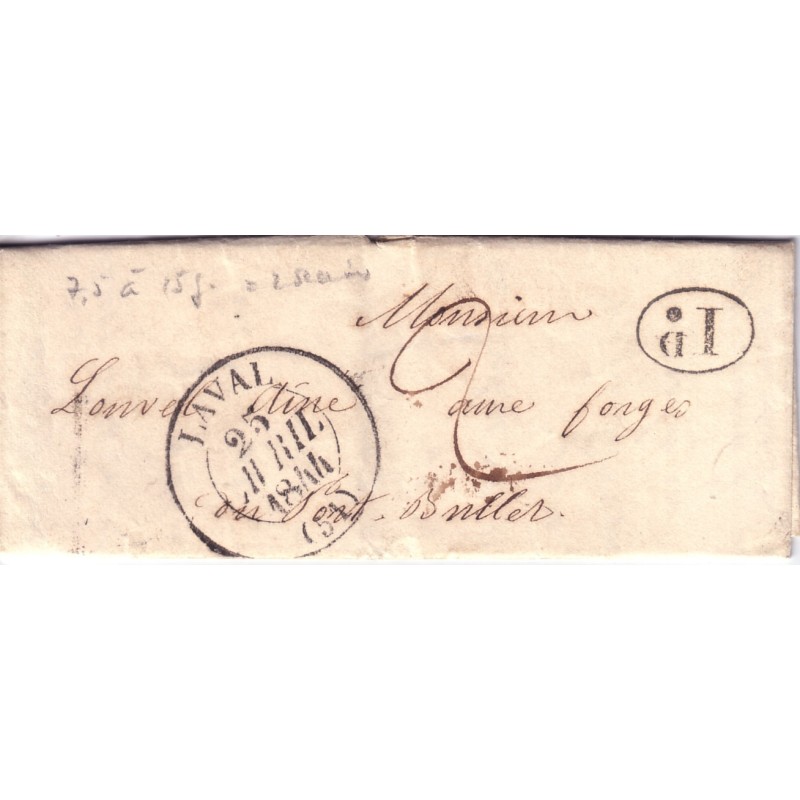 7,5 à 15g. = 2
Monsieur
ID
2
Louvel aîné aux forges
du Pont-Brillet.
LAVAL
25
AVRIL
1844
(51)